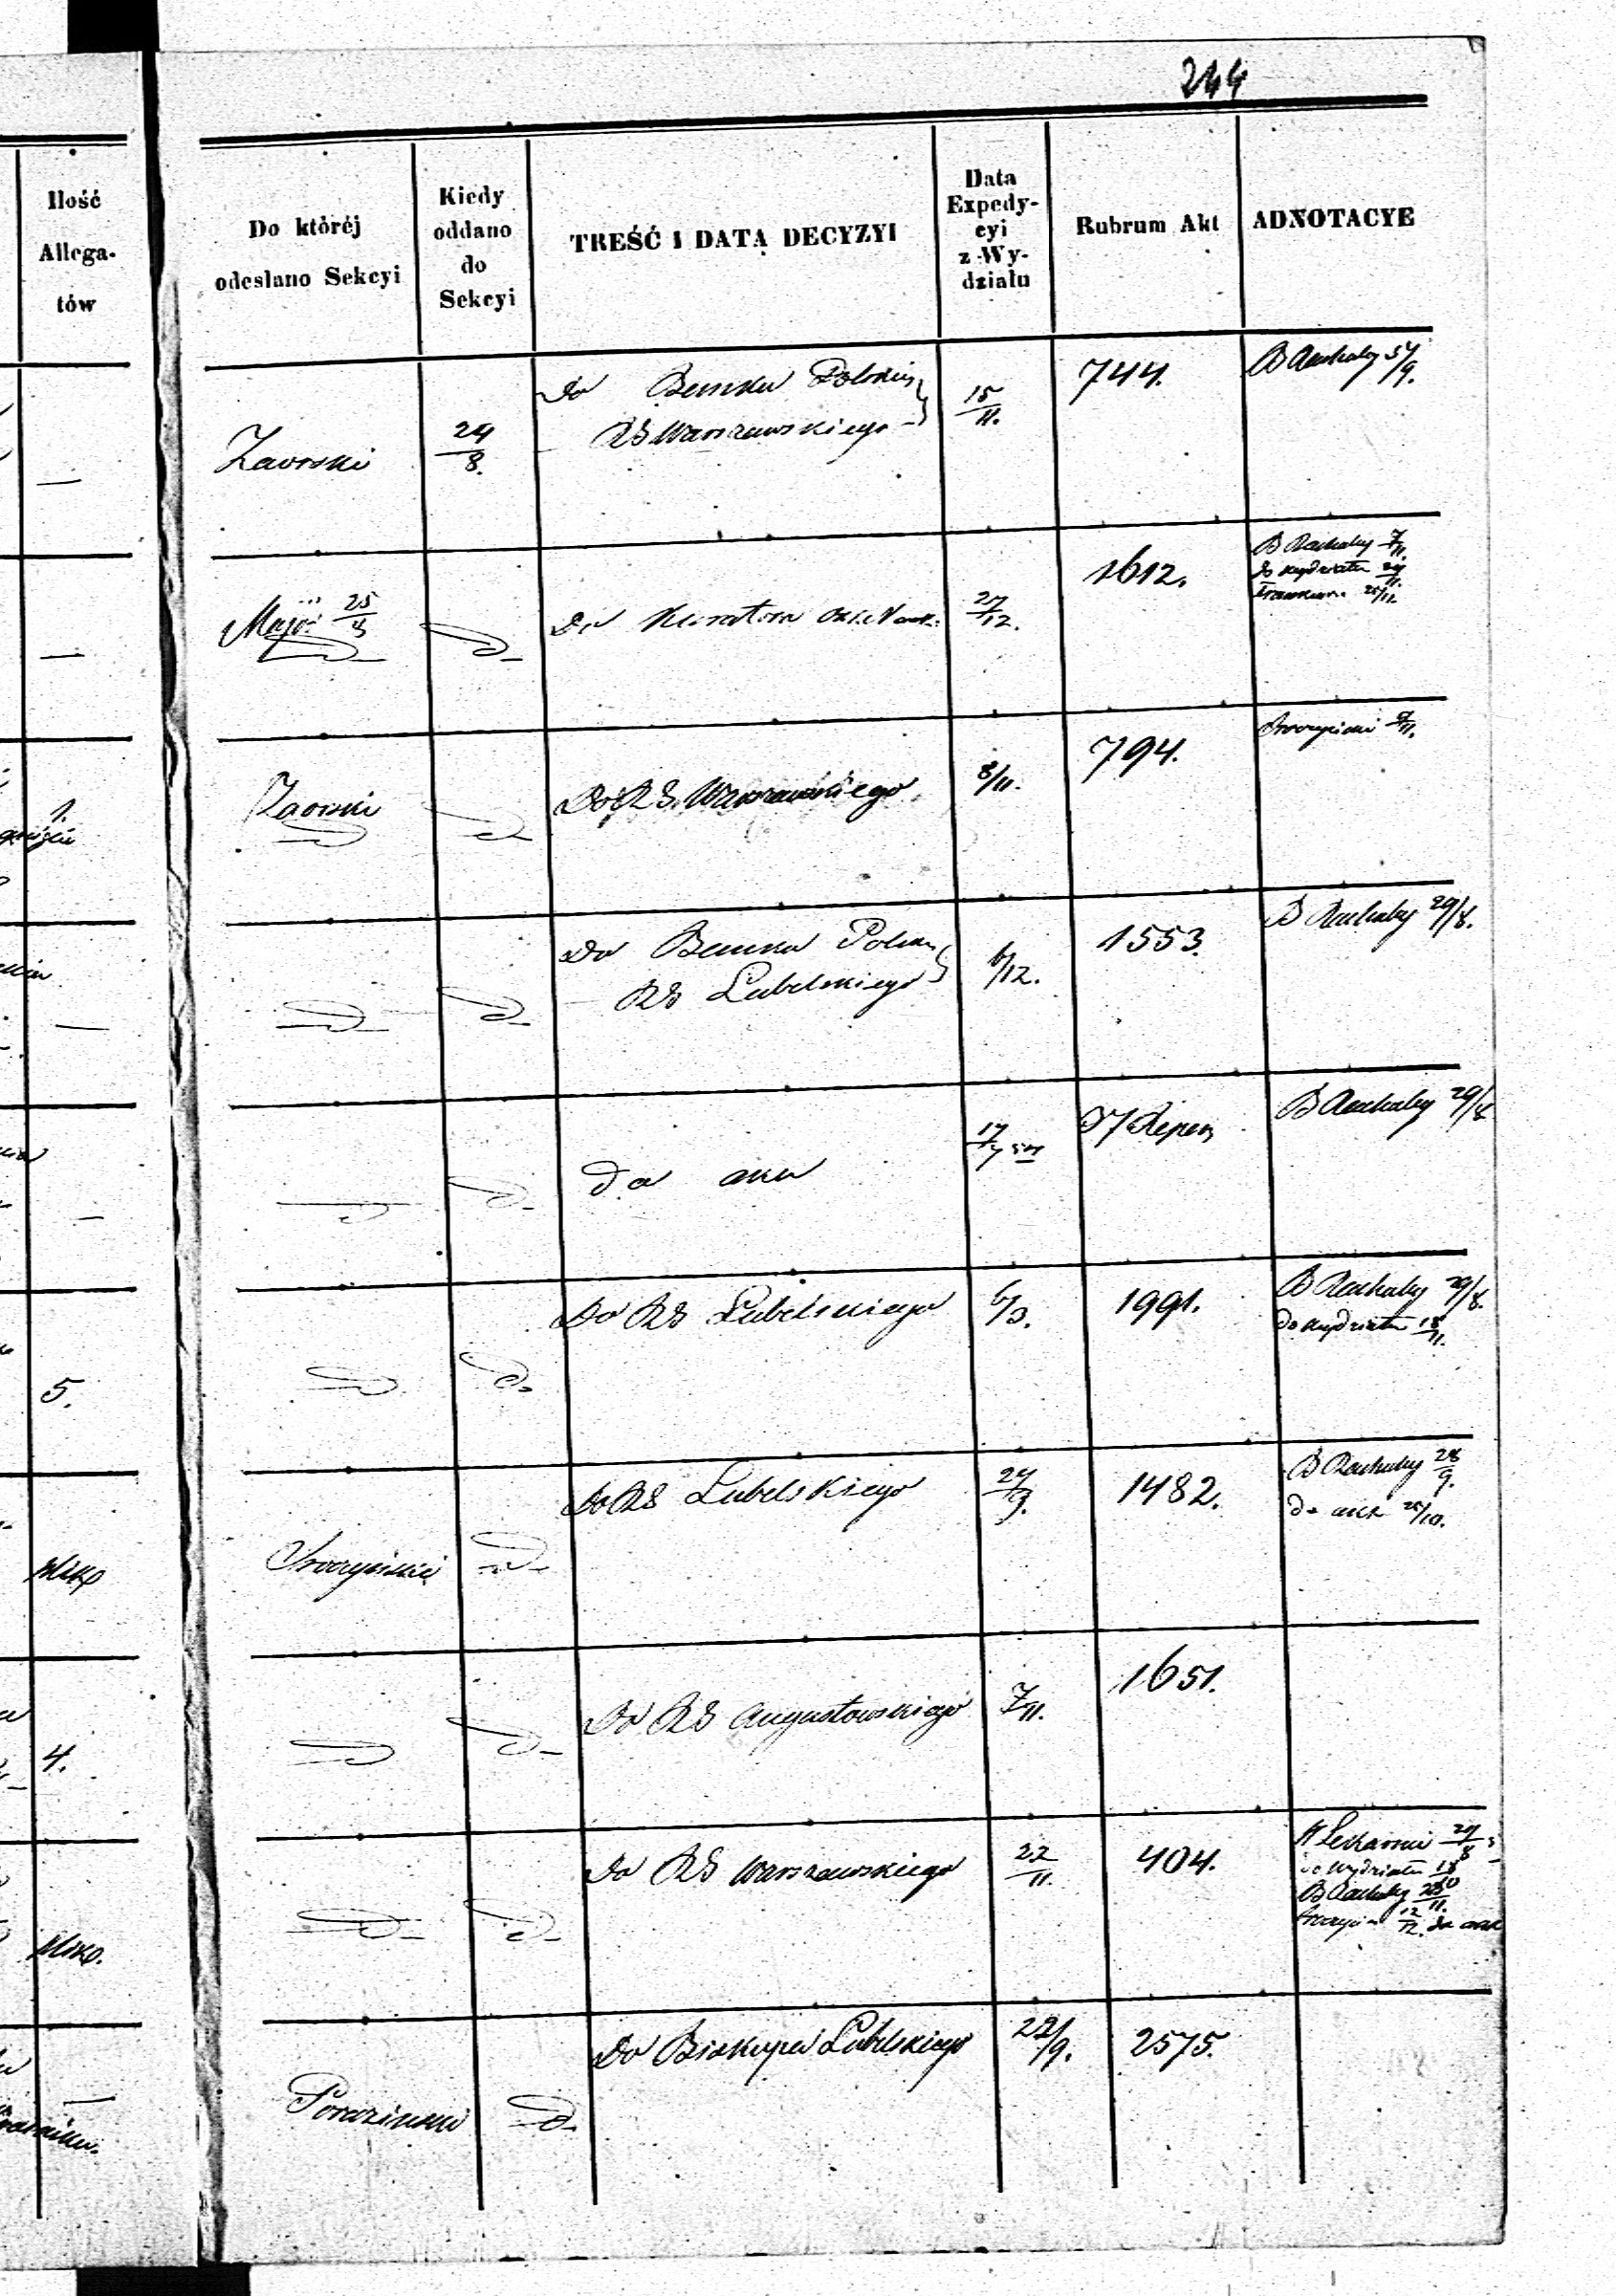 244
Ilość
Allega-
tów
Do któréj
odesłano Sekcyi
Kiedy
oddano
do
Sekcyi
TREŚĆ I DATA DECYZYI
Data
Expedy-
cyi
z Wy-
działu
Rubrum Akt
ADNOTACYE
Zaorski
24/8.
Do Banku Polskieg
RG Warszawskiego
15/11.
744.
B Rachuby 9.
Majo: 25/8
d
Do Kuratora
27/12.
1612.
B Rachuby 7/11.
do wydziału 24/11.
25/11.
1.
Zaorski
d
d
Do RG Warszawskiego
8/11.
794.
9/11.
d
d
Do Banku Polsk
RG Lubelskiego
6/12.
1553.
B Rachuby 29/8.
d
d
Do akt
17/7
37 Reper
B Rachuby 29/8
5.
d
d
Do RG Lubelskiego
6/3.
1991.
B Rachuby 29/8.
do wydziału 18/11.
d
Do RG Lubelskiego
24/9.
1482.
B Rachuby 28/9.
do akt 25/10.
4.
d
d
Do RG Augustowskiego
7/11.
1651.
d
d
Do RG Warszawskiego
22/11.
404.
do wydziału 18/10
B Rachuby 28/11.
12/12. do akt
d
Do Biskupa Lubelskiego
22/9.
2575.